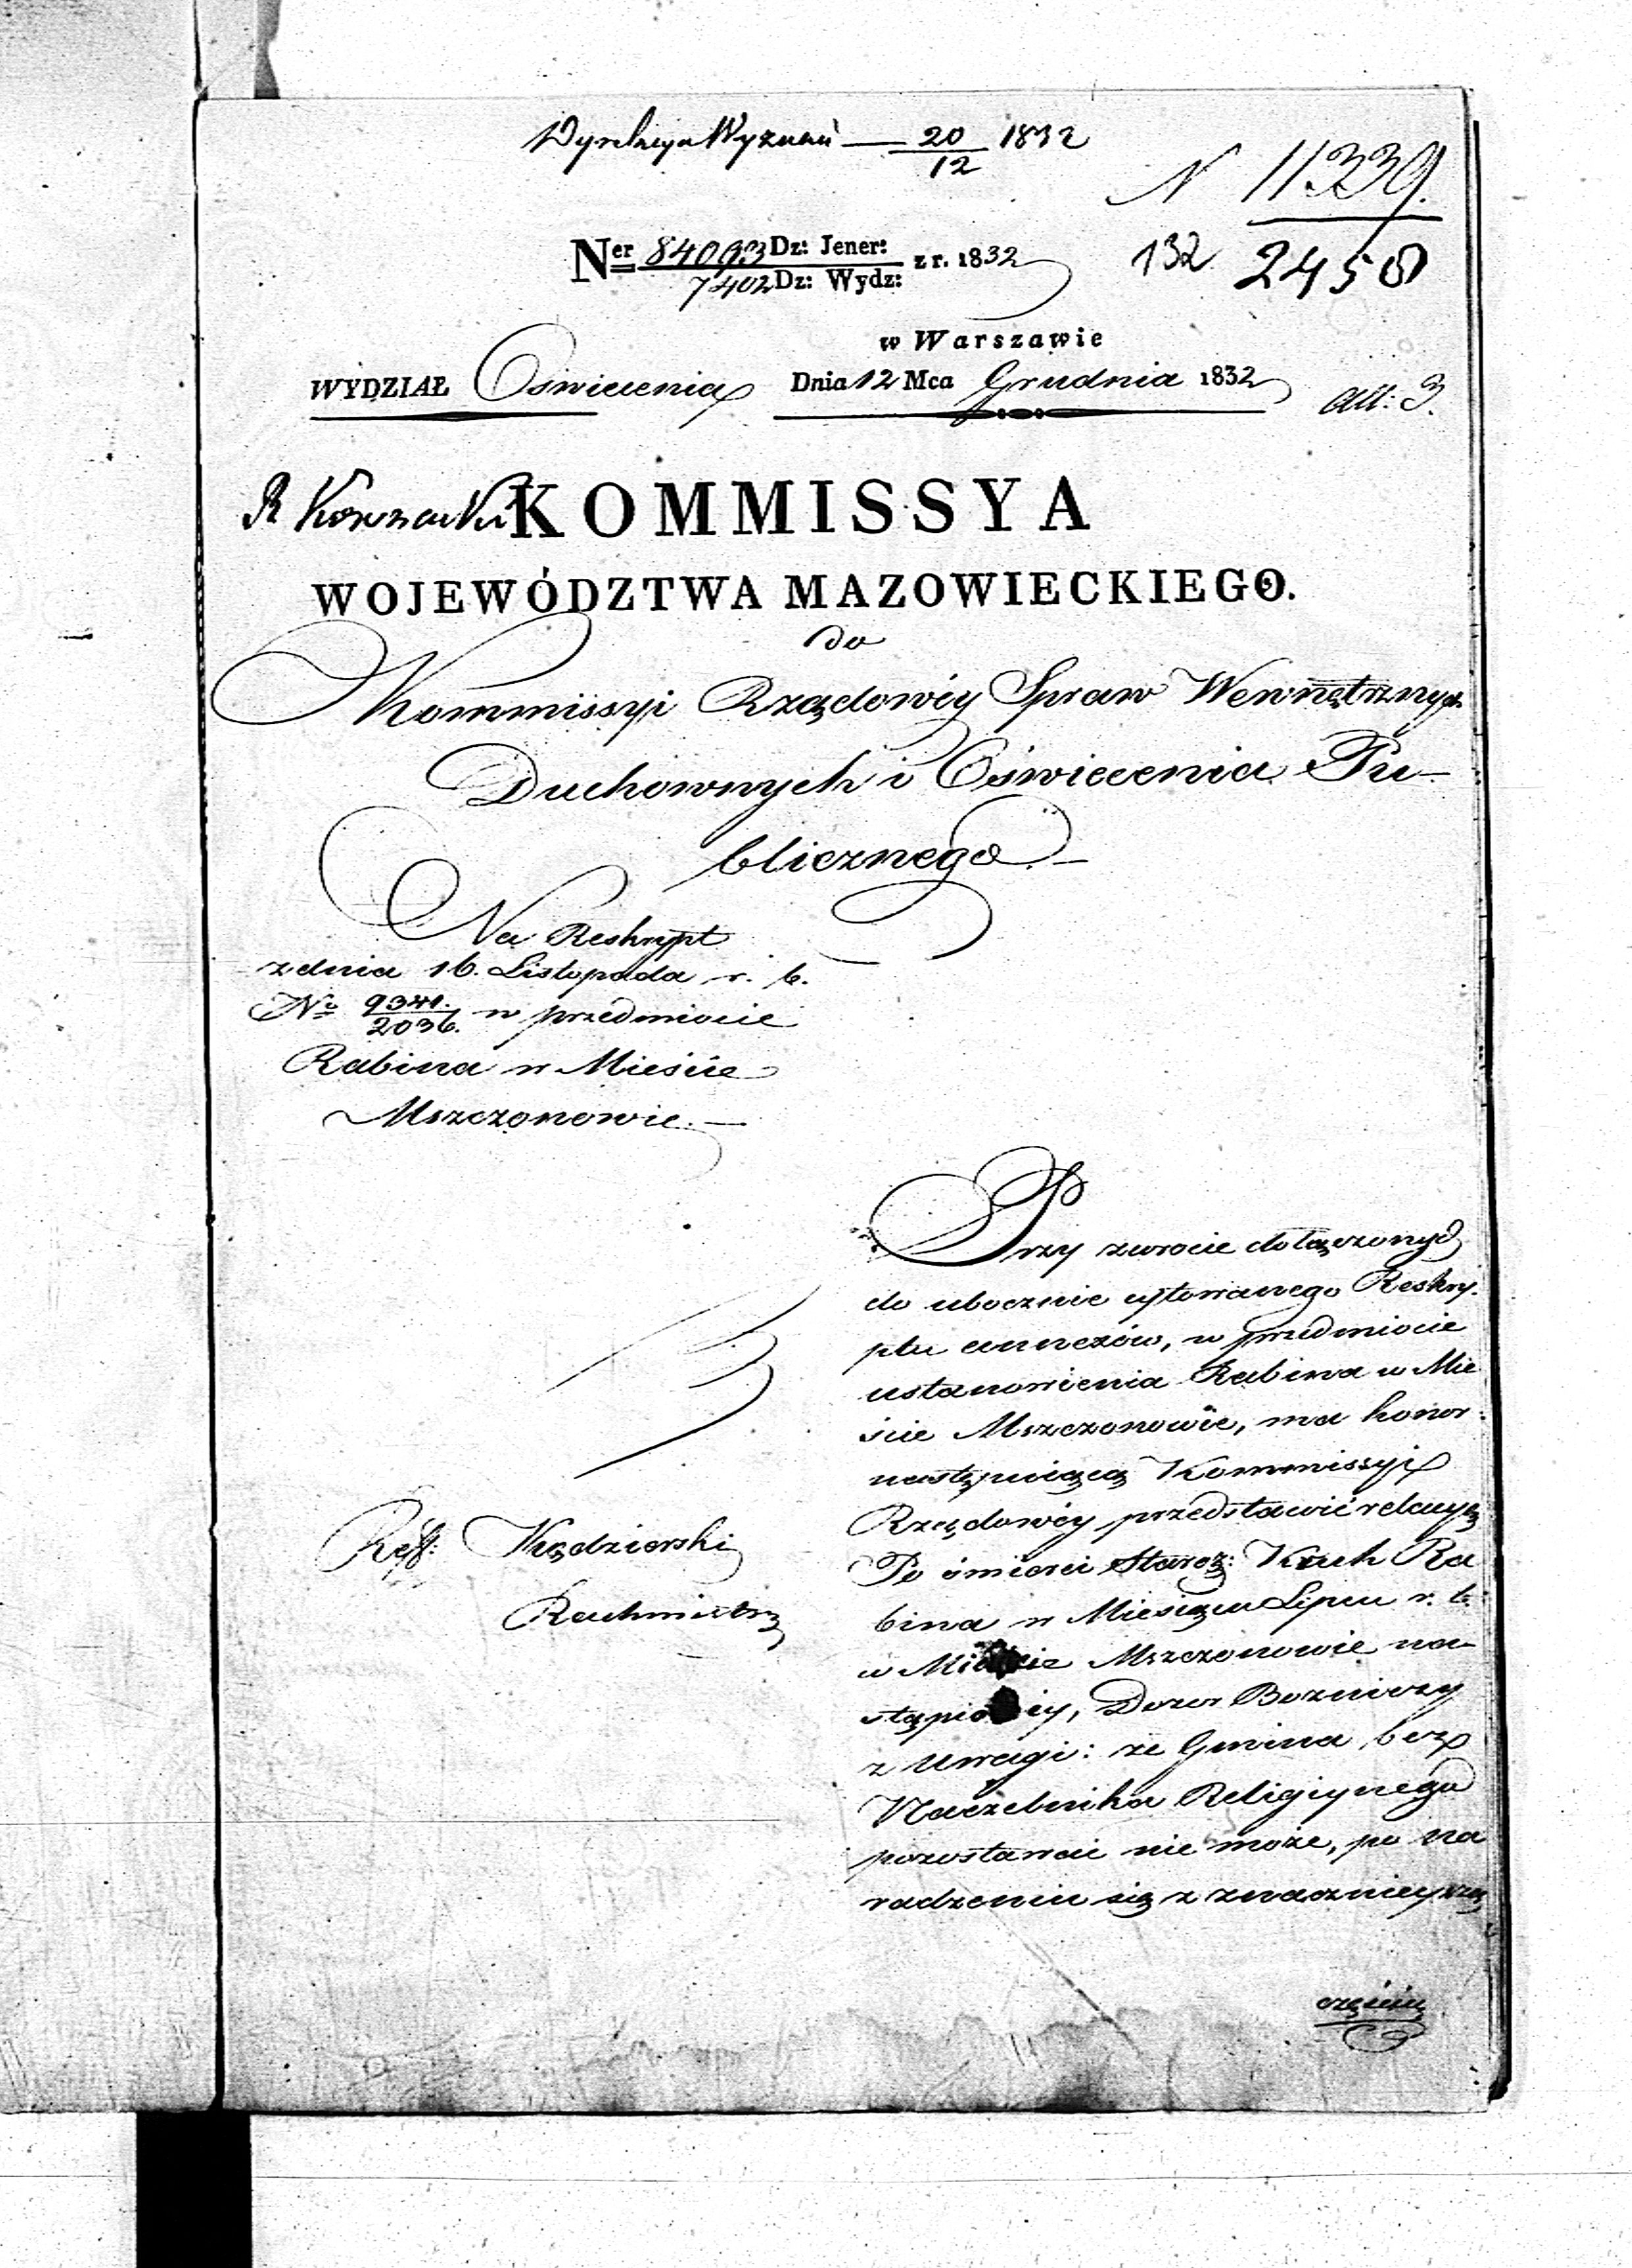 Dyrekcya Wyznań — 20/12 1832
N 11339.
132 2458
Ner 84093 Dz: Jener: z r. 1832
7402 Dz: Wydz:
w Warszawie
WYDZIAŁ Oświecenia Dnia 12 Mca Grudnia 1832
all: 3.
KOMMISSYA
WOJEWÓDZTWA MAZOWIECKIEGO.
do
Kommissyi Rządowéy Spraw Wewnętrznych
Duchownych i Oświecenia Pu-
blicznego.—
Na Reskrypt
z dnia 16. Listopada r. b.
No 9341./2036. w przedmiocie
Rabina w Mieście
Mszczonowie.—
Przy zwrocie dołączonych
do ubocznie cytowanego Reskry-
ptu annexów, w przedmiocie
ustanowienia Rabina w Mie
ście Mszczonowie, ma honor
następuiącą Kommissyi
Rządowéy przedstawić relacyą
Po śmierci Staroz: Ra
bina w Miesiącu Lipcu r. b.
w Mieście Mszczonowie na-
stąpionéy, Dozor Bożniczy
z uwagi: że Gmina bez
Naczelnika Religiynego
pozostawać nie może, po na
radzeniu się z znacznieyszą
częścią
Reff: Kędzierski
Rachmistrz